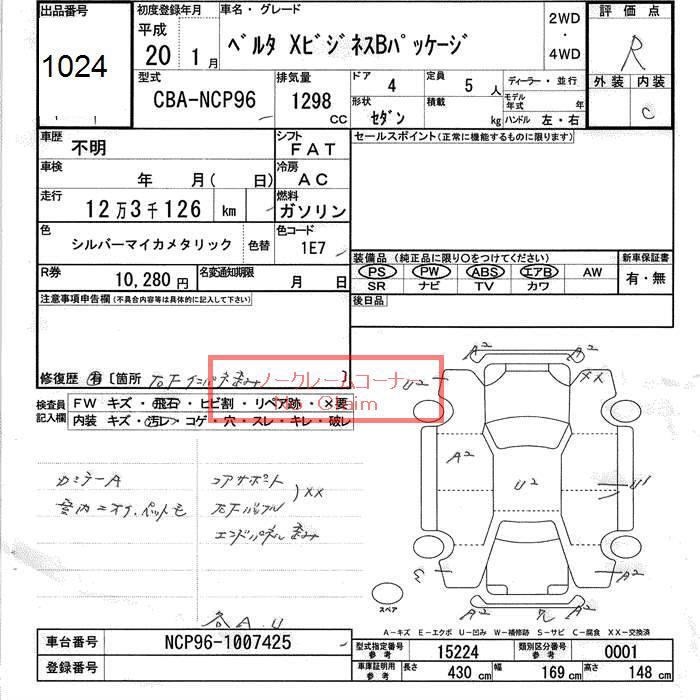 出品番号
1024
初度登録年月
平成
20年1月
車名・グレード
ベルタ XビジネスBパッケージ
2WD
・
4WD
評価点
R
外装 内装
C
型式
CBA-NCP96
排気量
1298
CC
ドア 4
定員 5 人
ディーラー・並行
形状
セダン
積載
kg
モデル年式 年
ハンドル 左・右
車歴
不明
シフト
FAT
セールスポイント(正常に機能するものに限ります)
車検
年 月( 日)
冷房
AC
走行
12万3千126 km
燃料
ガソリン
色
シルバーマイカメタリック
色替
色コード
1E7
装備品 (純正品に限り○をつけてください)
PS PW ABS エアB AW
SR ナビ TV カワ
新車保証書
有・無
R券
10,280円
名変通知期限
月 日
後日品
注意事項申告欄(不具合内容等は具体的に記入して下さい)
修復歴 有 〔箇所 右Fインパネ歪み 〕
ノークレームコーナー
No Claim
検査員
記入欄
FW キズ・飛石・ヒビ割・リペア跡・×要
内装 キズ・汚レ・コゲ・穴・スレ・キレ・破レ
コアサポート
XX
エンドパネル歪み
各A.U
A2
U2
XX
A2
U2
U1
A2
A2
A2
スペア
A-キズ E-エクボ U-凹み W-補修跡 S-サビ C-腐食 XX-交換済
車台番号
NCP96-1007425
登録番号
型式指定番号
参考
15224
類別区分番号
参考
0001
車庫証明用
参考
長さ 430 cm
幅 169 cm
高さ 148 cm